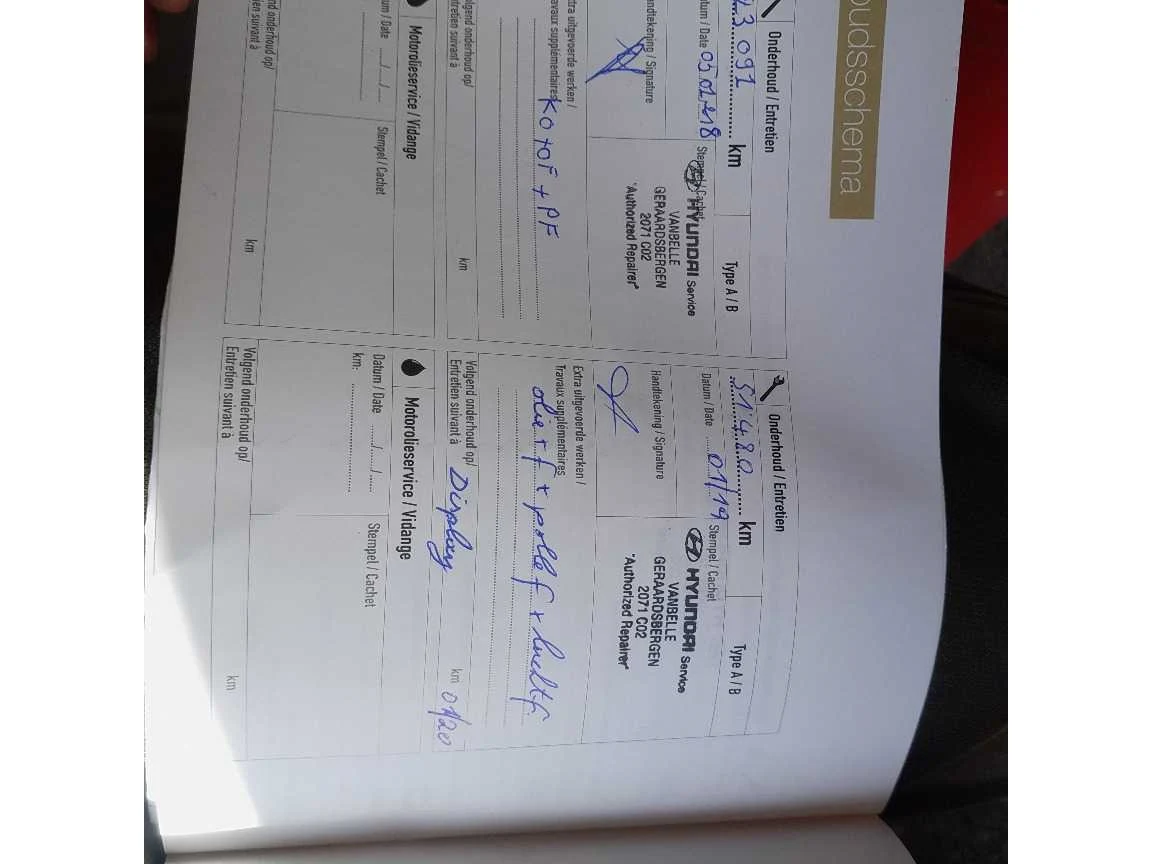 oudsschema
Onderhoud / Entretien
23 091 km
Type A / B
Datum / Date 05.01.18
Stempel / Cachet
HYUNDAI Service
VANBELLE
GERAARDSBERGEN
2071 C02
"Authorized Repairer"
Handtekening / Signature
xtra uitgevoerde werken /
avaux supplémentaires
KO + OF + PF
lgend onderhoud op/
ntretien suivant à
km
Motorolieservice / Vidange
um / Date ..../..../....
Stempel / Cachet
nd onderhoud op/
en suivant à
km
Onderhoud / Entretien
51.480 km
Type A / B
Datum / Date 01/19
Stempel / Cachet
HYUNDAI Service
VANBELLE
GERAARDSBERGEN
2071 C02
"Authorized Repairer"
Handtekening / Signature
Extra uitgevoerde werken /
Travaux supplémentaires
olie + f + polle f + lucht f.
Volgend onderhoud op/
Entretien suivant à
Display
km 01/20
Motorolieservice / Vidange
Datum / Date ...../...../.....
Stempel / Cachet
km: ..............................
Volgend onderhoud op/
Entretien suivant à
km